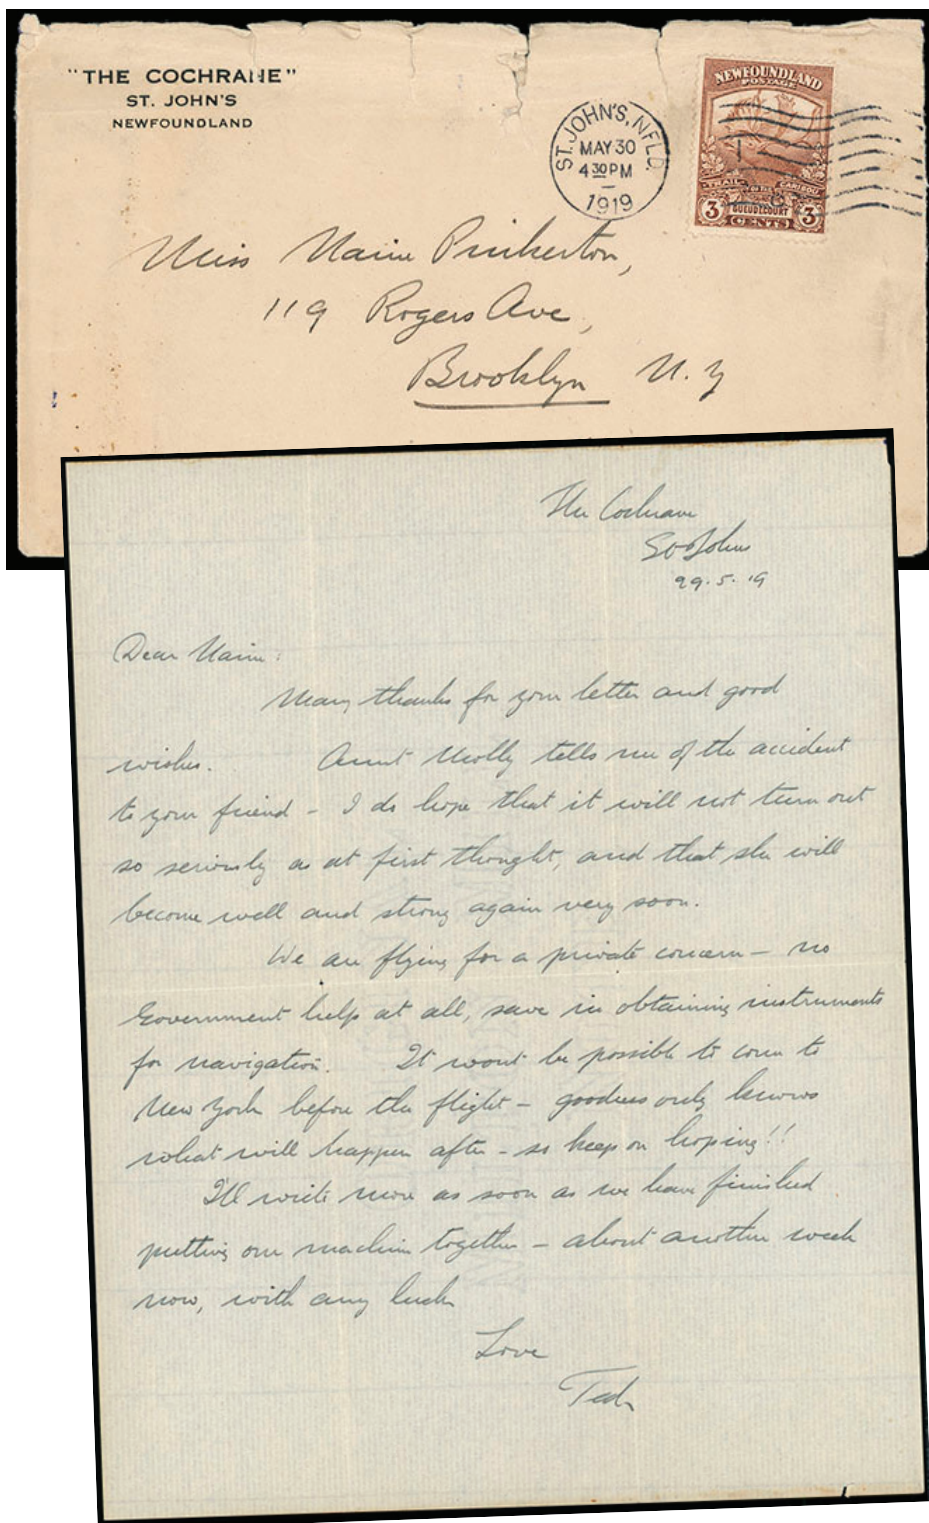 "THE COCHRANE"
ST. JOHN'S
NEWFOUNDLAND
ST. JOHN'S, NFLD.
MAY 30
4 30 PM
1919
NEWFOUNDLAND
POSTAGE
TRAIL OF THE CARIBOU
GUEUDECOURT
3 3
CENTS
Miss Maine Pinkerton,
119 Rogers Ave,
Brooklyn N.Y
The Cochrane
St Johns
29.5.19
Dear Maine:
Many thanks for your letter and good
wishes. Aunt Molly tells me of the accident
to your friend - I do hope that it will not turn out
so seriously as at first thought, and that she will
become well and strong again very soon.
We are flying for a private concern - no
Government help at all, save in obtaining instruments
for navigation. It wont be possible to come to
New York before the flight - goodness only knows
what will happen after - so keep on hoping!!
I'll write more as soon as we have finished
putting our machine together - about another week
now, with any luck
Love
Ted